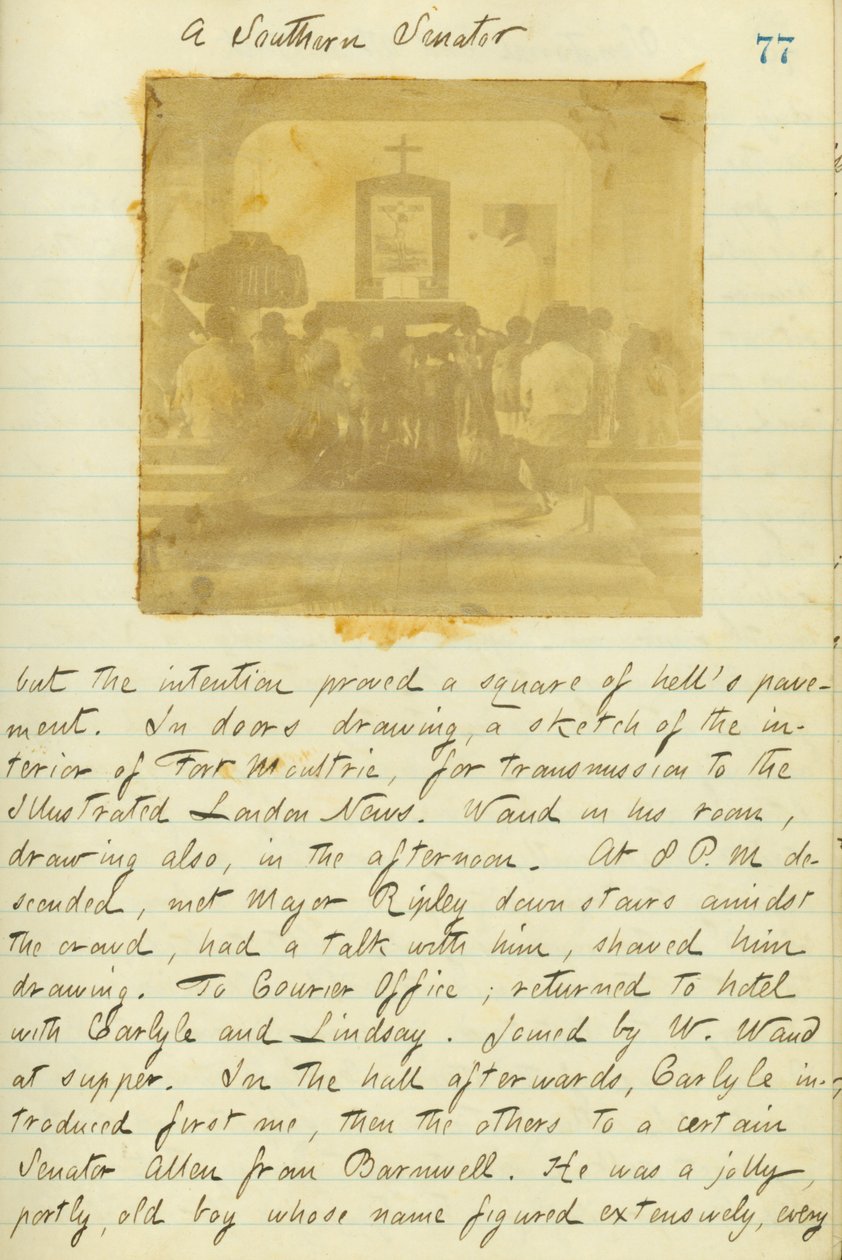 A Southern Senator
77
but the intention proved a square of hell's pave-
ment. In doors drawing, a sketch of the in-
terior of Fort Moultrie, for transmission to the
Illustrated London News. Waud in his room,
drawing also, in the afternoon. At 8 P.M de-
scended, met Major Ripley down stairs amidst
the crowd, had a talk with him, showed him
drawing. To Courier Office; returned to hotel
with Carlyle and Lindsay. Joined by W. Waud
at supper. In the hall afterwards, Carlyle in-
troduced first me, then the others to a certain
Senator Allen from Barnwell. He was a jolly,
portly, old boy whose name figured extensively, every